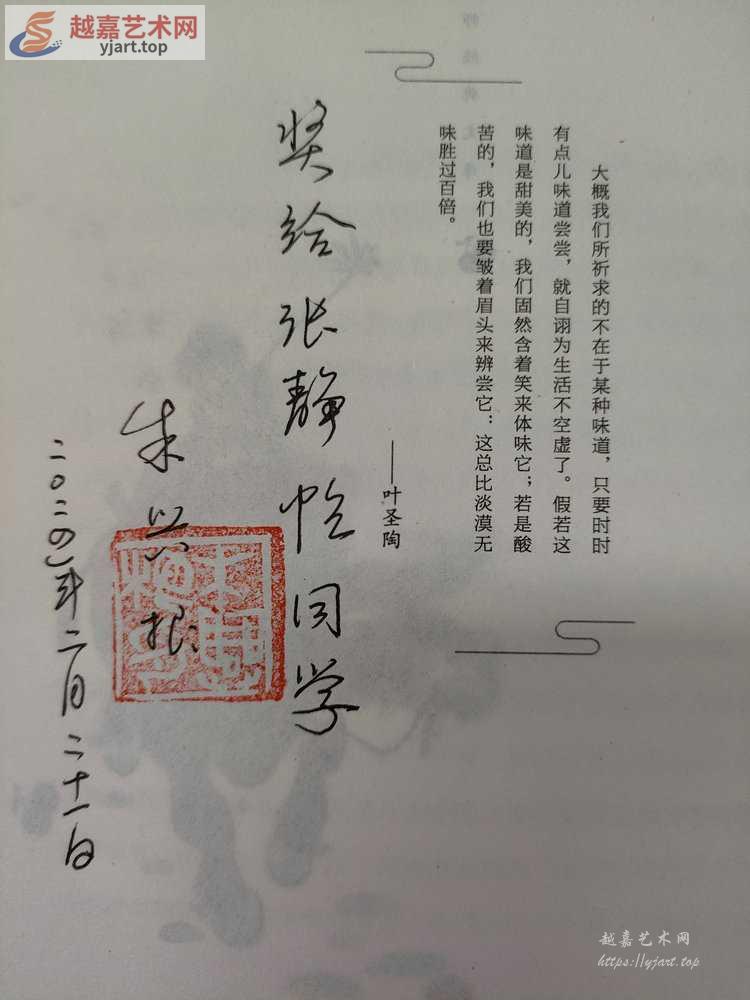 越嘉艺术网
yjart.top
大概我们所祈求的不在于某种味道，只要时时
有点儿味道尝尝，就自诩为生活不空虚了。假若这
味道是甜美的，我们固然含着笑来体味它；若是酸
苦的，我们也要皱着眉头来辨尝它：这总比淡漠无
味胜过百倍。
——叶圣陶
奖给张静怡同学
朱兴根
二〇二四年二月二十一日
越嘉艺术网
https://yjart.top